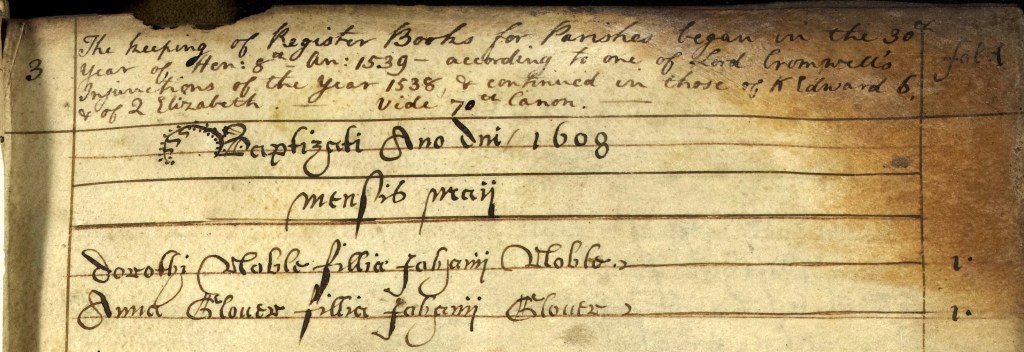 The keeping of Register Books for Parishes began in the 30th
3
Year of Hen: 8th An: 1539 – according to one of Lord Cromwell's
fol. 1
Injunctions of the Year 1538, & continued in those of K Edward 6,
& of Q Elizabeth. — Vide 70th Canon. —
Baptizati Ano dni / 1608
mensis maij
dorothi Noble fillia Johanij Noble
1.
Anna Glover fillia Johanij Glover
1.